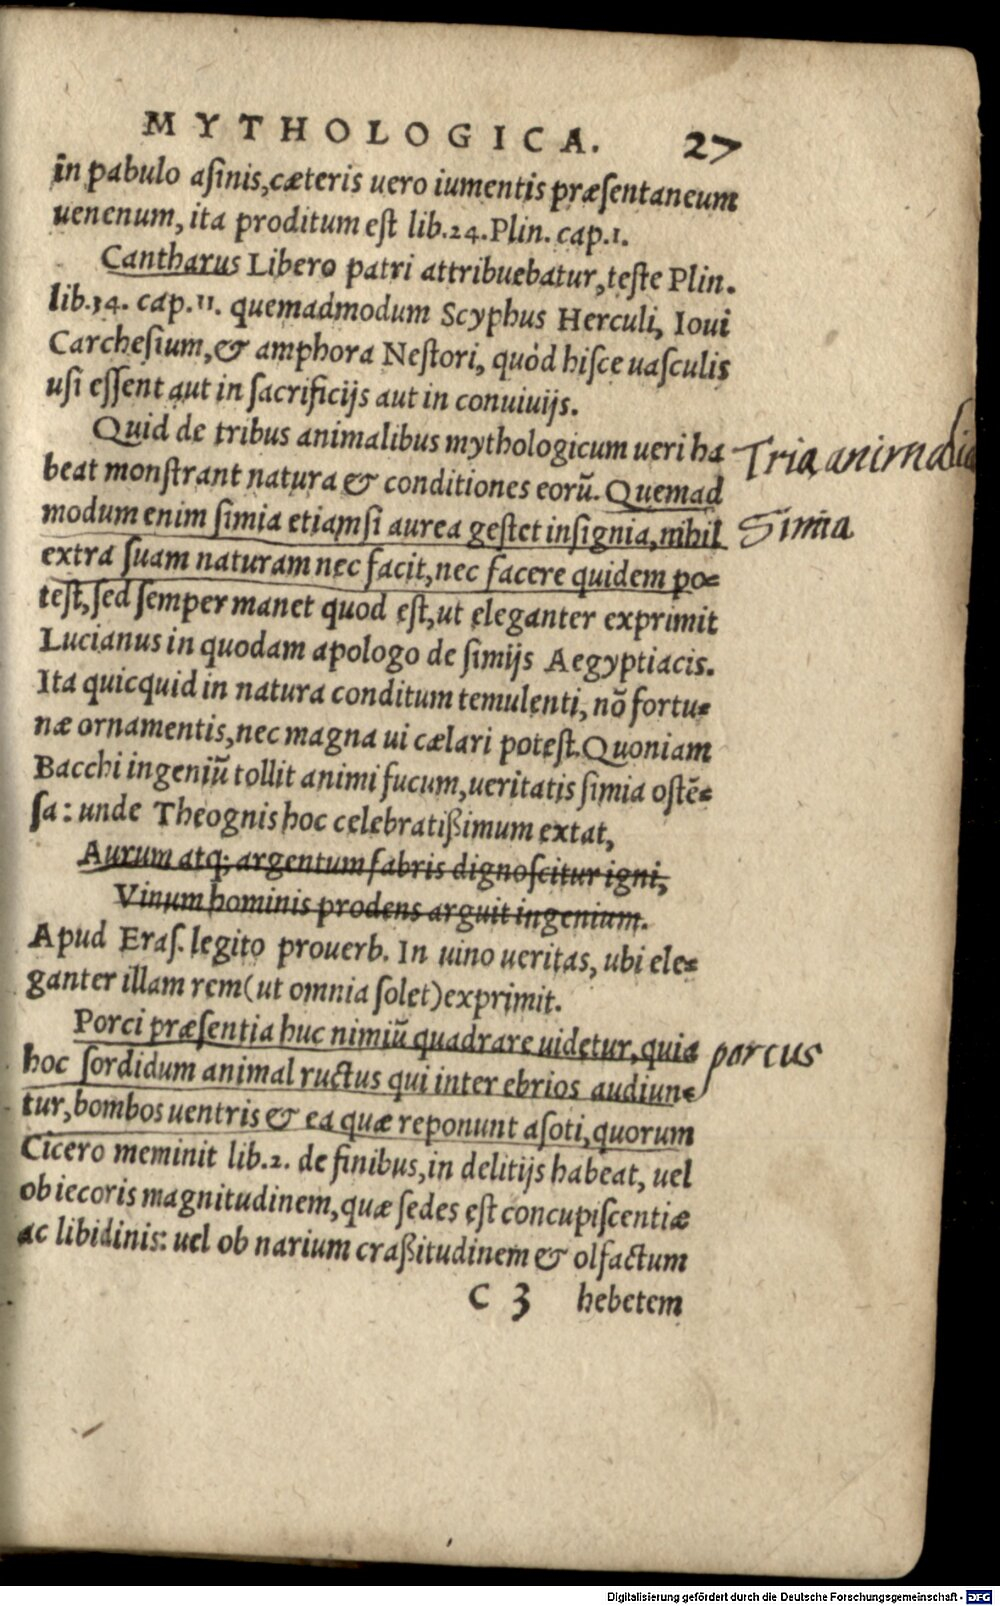 MYTHOLOGICA. 27
in pabulo asinis, cæteris uero iumentis præsentaneum
uenenum, ita proditum est lib.24. Plin. cap.1.
Cantharus Libero patri attribuebatur, teste Plin.
lib.34. cap.11. quemadmodum Scyphus Herculi, Ioui
Carchesium, & amphora Nestori, quòd hisce uasculis
usi essent aut in sacrificijs aut in conuiuijs.
Quid de tribus animalibus mythologicum ueri ha
Tria animalia
beat monstrant natura & conditiones eorū. Quemad
modum enim simia etiamsi aurea gestet insignia, nihil
Simia
extra suam naturam nec facit, nec facere quidem po=
test, sed semper manet quod est, ut eleganter exprimit
Lucianus in quodam apologo de simijs Aegyptiacis.
Ita quicquid in natura conditum temulenti, nō fortu=
næ ornamentis, nec magna ui cælari potest. Quoniam
Bacchi ingeniū tollit animi fucum, ueritatis simia ostē=
sa: unde Theognis hoc celebratißimum extat,
Aurum atq; argentum fabris dignoscitur igni,
Vinum hominis prodens arguit ingenium.
Apud Eras. legito prouerb. In uino ueritas, ubi ele=
ganter illam rem (ut omnia solet) exprimit.
Porci præsentia huc nimiū quadrare uidetur, quia
porcus
hoc sordidum animal ructus qui inter ebrios audiun=
tur, bombos uentris & ea quæ reponunt asoti, quorum
Cicero meminit lib.2. de finibus, in delitijs habeat, uel
ob iecoris magnitudinem, quæ sedes est concupiscentiæ
ac libidinis: uel ob narium craßitudinem & olfactum
C 3 hebetem
Digitalisierung gefördert durch die Deutsche Forschungsgemeinschaft - DFG